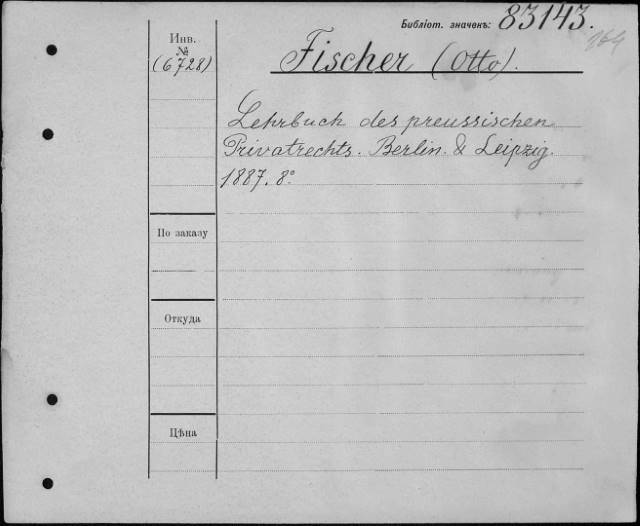 Библіот. значекъ: 83143.
Инв.
№
(6728)
Fischer (Otto).
Lehrbuch des preussischen
Privatrechts. Berlin & Leipzig.
1887. 8º
По заказу
Откуда
Цѣна